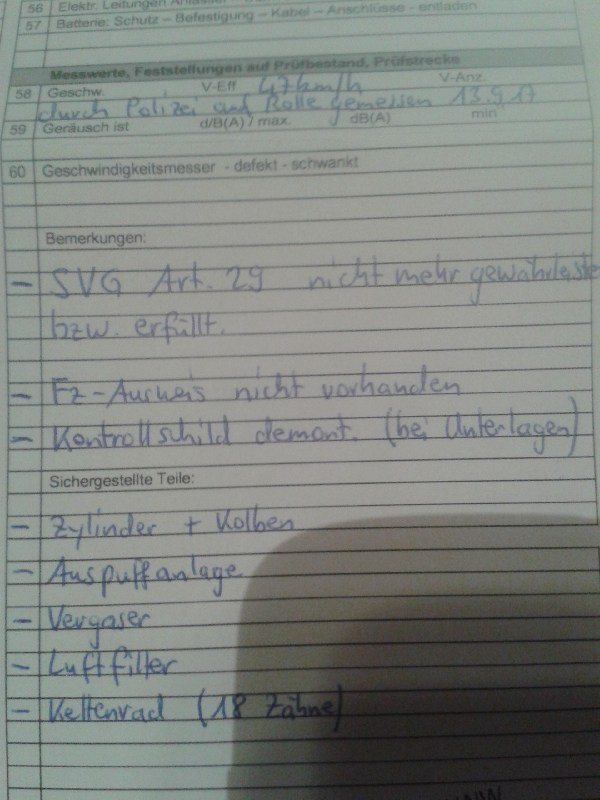 56 Elektr. Leitungen Anlasser
57 Batterie: Schutz – Befestigung – Kabel – Anschlüsse - entladen
Messwerte, Feststellungen auf Prüfbestand, Prüfstrecke
58 Geschw. V-Eff 47 km/h V-Anz.
durch Polizei auf Rolle gemessen 13.9.17
59 Geräusch ist d/B(A) / max. dB(A) min
60 Geschwindigkeitsmesser - defekt - schwankt
Bemerkungen:
– SVG Art. 29 nicht mehr gewährleiste
bzw. erfüllt.
– Fz-Ausweis nicht vorhanden
– Kontrollschild demont. (bei Unterlagen)
Sichergestellte Teile:
– Zylinder + Kolben
– Auspuffanlage
– Vergaser
– Luftfilter
– Kettenrad (18 Zähne)